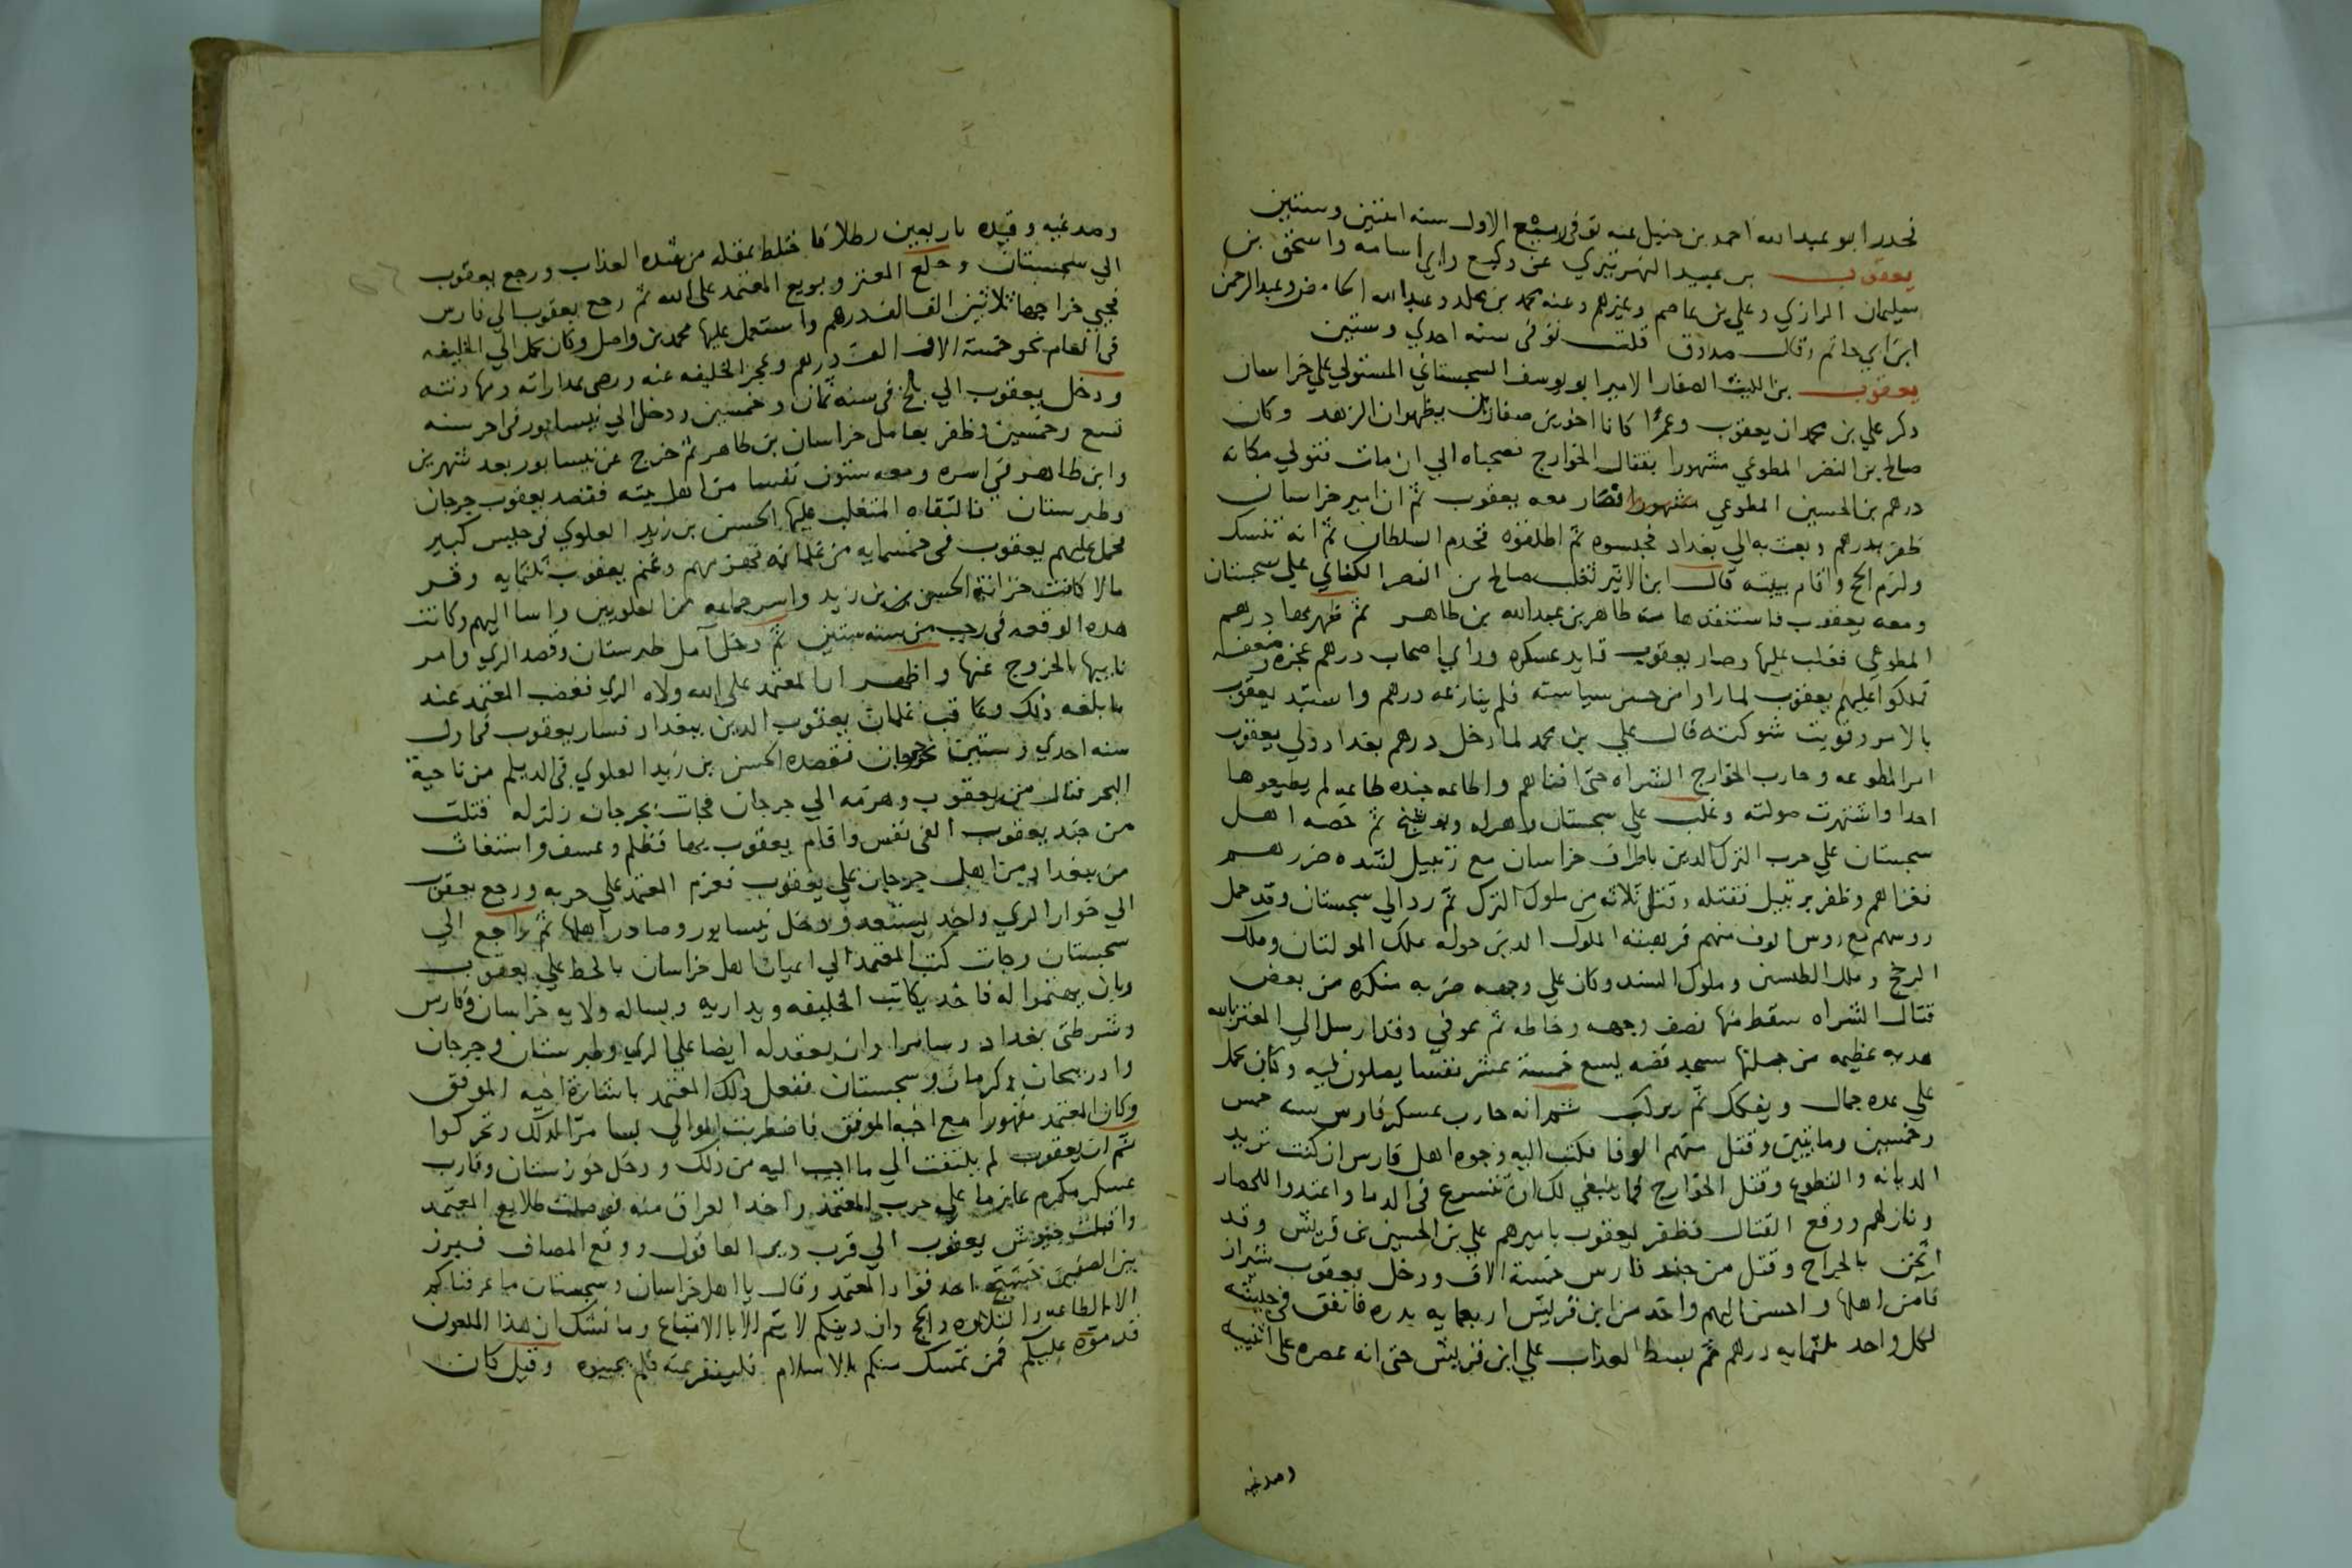 تحدر ابو عبد الله احمد بن حنبل عنه توفى ربيع الاول سنه اثنتين وستين
يعقوب بن عبيد النهرتيري عن وكيع وابي اسامه واسحق بن
سليمان الرازي وعلي بن عاصم وغيرهم وعنه محمد بن مخلد وعبد الله الحامض وعبد الرحمن
ابن ابي حاتم وقال صدوق قلت توفى سنه احدي وستين
يعقوب بن الليث الصفار الامير ابو يوسف السجستاني المستولي علي خراسان
ذكر علي بن محمد ان يعقوب وعمرًا كانا اخوين صفارين يظهران الزهد وكان
صالح بن النضر المطوعي مشهورا بقتال الخوارج فصحباه الي ان مات فتولي مكانه
درهم بن الحسين المطوعي فصار معه يعقوب ثم ان امير خراسان
ظفر بدرهم وبعث به الي بغداد فحبسوه ثم اطلقوه فخدم السلطان ثم انه تنسك
ولزم الحج واقام ببيته قال ابن الاثير تغلب صالح بن النضر الكناني علي سجستان
ومعه يعقوب فاستنقذها منه طاهر بن عبد الله بن طاهر ثم ظهر بها درهم
المطوعي فغلب عليها وصار يعقوب قايد عسكره وراي اصحاب درهم عجزه وضعفه
فملكوا عليهم يعقوب لما راوا من حسن سياسته فلم ينازعه درهم واستبد يعقوب
بالامر وقويت شوكته قال علي بن محمد لما دخل درهم بغداد ولي يعقوب
امر المطوعه وحارب الخوارج الشراه حتى افناهم واطاعه جنده طاعه لم يطيعوها
احدا واشتهرت صولته وغلب علي سجستان وهراه وبوشنج ثم حضه اهل
سجستان علي حرب الترك الذين باطراف خراسان مع رتبيل لشده ضررهم
فغزاهم وظفر برتبيل فقتله وقتل ثلاثه من ملوك الترك ثم رد الي سجستان وقد حمل
روسهم مع روس الوف منهم فرهبته الملوك الذين حوله ملك المولتان وملك
الرخج وملك الطبسين وملوك السند وكان علي وجهه ضربه منكره من بعض
قتال الشراه سقط منها نصف وجهه وخاطه ثم عوفي وقد ارسل الي المعتز بالله
هديه عظيمه من جملتها مسجد فضه يسع خمسة عشر نفسا يصلون فيه وكان يحمل
علي عده جمال ويفكك ثم يركب ثم انه حارب عسكر فارس سنه خمس
وخمسين ومائتين وقتل منهم الوفا فكتب اليه وجوه اهل فارس ان كنت تريد
الديانه والتطوع وقتل الخوارج فما ينبغي لك ان تتسرع في الدما واعتدوا للحصار
ونازلهم ووقع القتال فظفر يعقوب باميرهم علي بن الحسين بن قريش وقد
اثخن بالجراح وقتل من جند فارس خمسة الاف ودخل يعقوب شيراز
فآمن اهلها واحسن اليهم واخذ من ابن قريش اربعمايه بدره فانفق في جيشه
لكل واحد ثلثمايه درهم ثم بسط العذاب علي ابن قريش حتى انه عصره على انثييه
وصدغيه
وصدغيه وقيده باربعين رطلا فاختلط بعقله من شده العذاب ورجع يعقوب
الي سجستان وخلع المعتز وبويع المعتمد على الله ثم رجع يعقوب الي فارس
فجبي خراجها ثلاثين الف الف درهم واستعمل عليها محمد بن واصل وكان يحمل الي الخليفه
في العام نحو خمسة الاف الف درهم وعجز الخليفه عنه ورضى بمداراته ومهادنته
ودخل يعقوب الي بلخ فى سنه ثمان وخمسين ودخل الي نيسابور فى اخر سنه
تسع وخمسين وظفر بعامل خراسان بن طاهر ثم خرج عن نيسابور بعد شهرين
وابن طاهر في اسره ومعه ستون نفسا من اهل بيته فقصد يعقوب جرجان
وطبرستان فالتقاه المتغلب عليها الحسن بن زيد العلوي فى جيش كبير
فحمل عليهم يعقوب فى خمسمايه من غلمانه فهزمهم وغنم يعقوب ثلثمايه وقر
مالا كانت خزانة الحسن بن زيد واسر جماعه من العلويين واسا اليهم وكانت
هذه الوقعه في رجب من سنه ستين ثم دخل آمل طبرستان وقصد الري وامر
نايبها بالخروج عنها واظهر ان المعتمد على الله ولاه الري فغضب المعتمد عند
ما بلغه ذلك وعاقب غلمان يعقوب الذين ببغداد فسار يعقوب فى اول
سنه احدي وستين نحو جرجان فقصده الحسن بن زيد العلوي في الديلم من ناحية
البحر فنال من يعقوب وهزمه الي جرجان فجات بجرجان زلزله فقتلت
من جند يعقوب الفى نفس واقام يعقوب بها فظلم وعسف واستغاث
من ببغداد من اهل جرجان علي يعقوب فعزم المعتمد علي حربه ورجع يعقوب
الي خوار الري ودخل نيسابور وصادر اهلها ثم رجع الي
سجستان وجات كتب المعتمد الي اعيان اهل خراسان بالحط علي يعقوب
وبان يهتموا له فاخذ يكاتب الخليفه ويداريه ويساله ولايه خراسان وفارس
وشرطتى بغداد وسامرا وان يعقد له ايضا علي الري وطبرستان وجرجان
واذربيجان وكرمان وسجستان ففعل ذلك المعتمد باشارة اخيه الموفق
وكان المعتمد مقهورا مع اخيه الموفق فاضطربت الموالي بسامرا لذلك وتحركوا
ثم ان يعقوب لم يلتفت الي ما اجيب اليه من ذلك ودخل خوزستان وقارب
عسكر مكرم عازما علي حرب المعتمد واخذ العراق منه فوصلت طلايع المعتمد
واقبلت جيوش يعقوب الي قرب دير العاقول ووقع المصاف فبرز
بين الصفين احد قواد المعتمد وقال يا اهل خراسان وسجستان ما عرفناكم
الا بالطاعه والتلاوه والحج وان دينكم لا يتم الا بالاتباع وما نشك ان هذا الملعون
قد موّه عليكم فمن تمسك منكم بالاسلام فلينفر عنه فلم يجيبوه وقيل كان